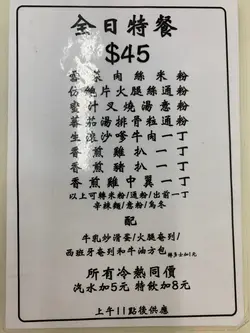 全日特餐
$45
雪菜肉絲米粉
仿鮑片火腿絲通粉
蜜汁叉燒湯意粉
蕃茄湯排骨粒通粉
生滾沙嗲牛肉一丁
香煎雞扒一丁
香煎豬扒一丁
香煎雞中翼一丁
以上可轉米粉/通粉/出前一丁
辛辣麵/意粉/烏冬
配
牛乳炒滑蛋/火腿奄列/
西班牙奄列和牛油方包 轉多士加1元
所有冷熱同價
汽水加5元 特飲加8元
上午11點後供應